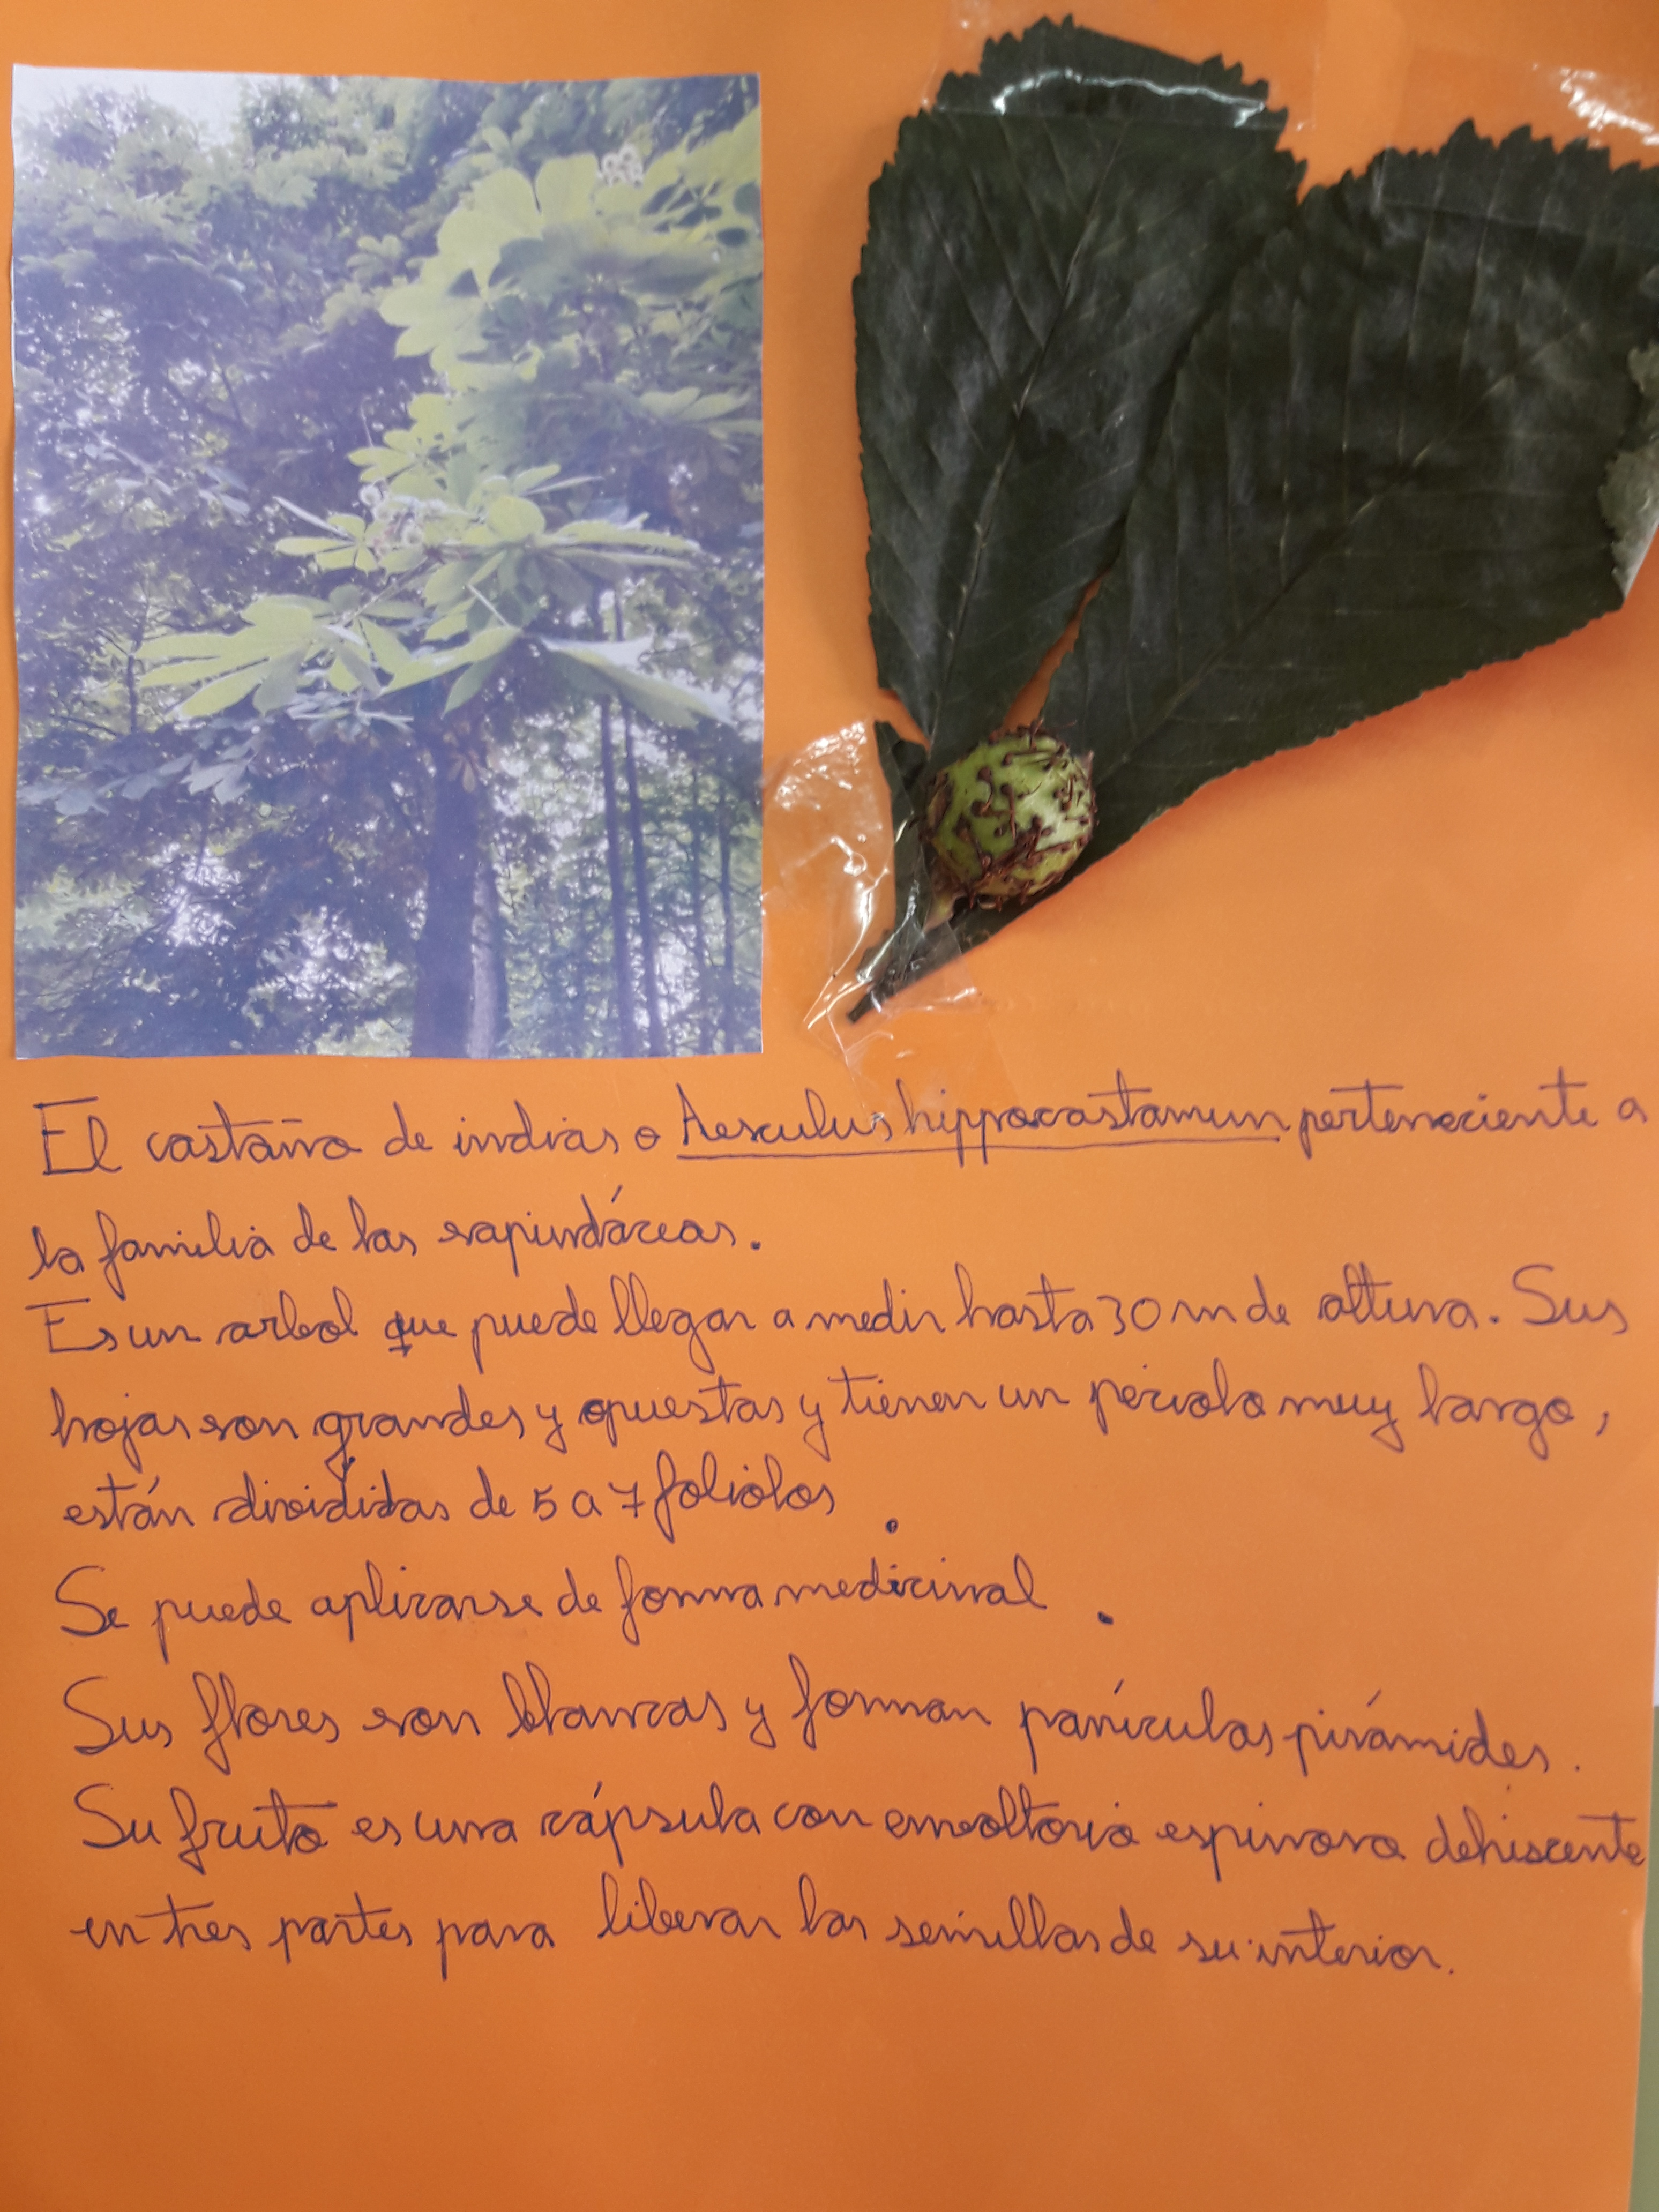 El castaño de indias o Aesculus hippocastamun perteneciente a
la familia de las sapindáceas.
Es un arbol que puede llegar a medir hasta 30 m de altura. Sus
hojas son grandes y opuestas y tienen un peciolo muy largo,
están divididas de 5 a 7 foliolos.
Se puede aplicarse de forma medicinal.
Sus flores son blancas y forman panículas pirámides.
Su fruto es una cápsula con envoltorio espinoso dehiscente
en tres partes para liberar las semillas de su interior.